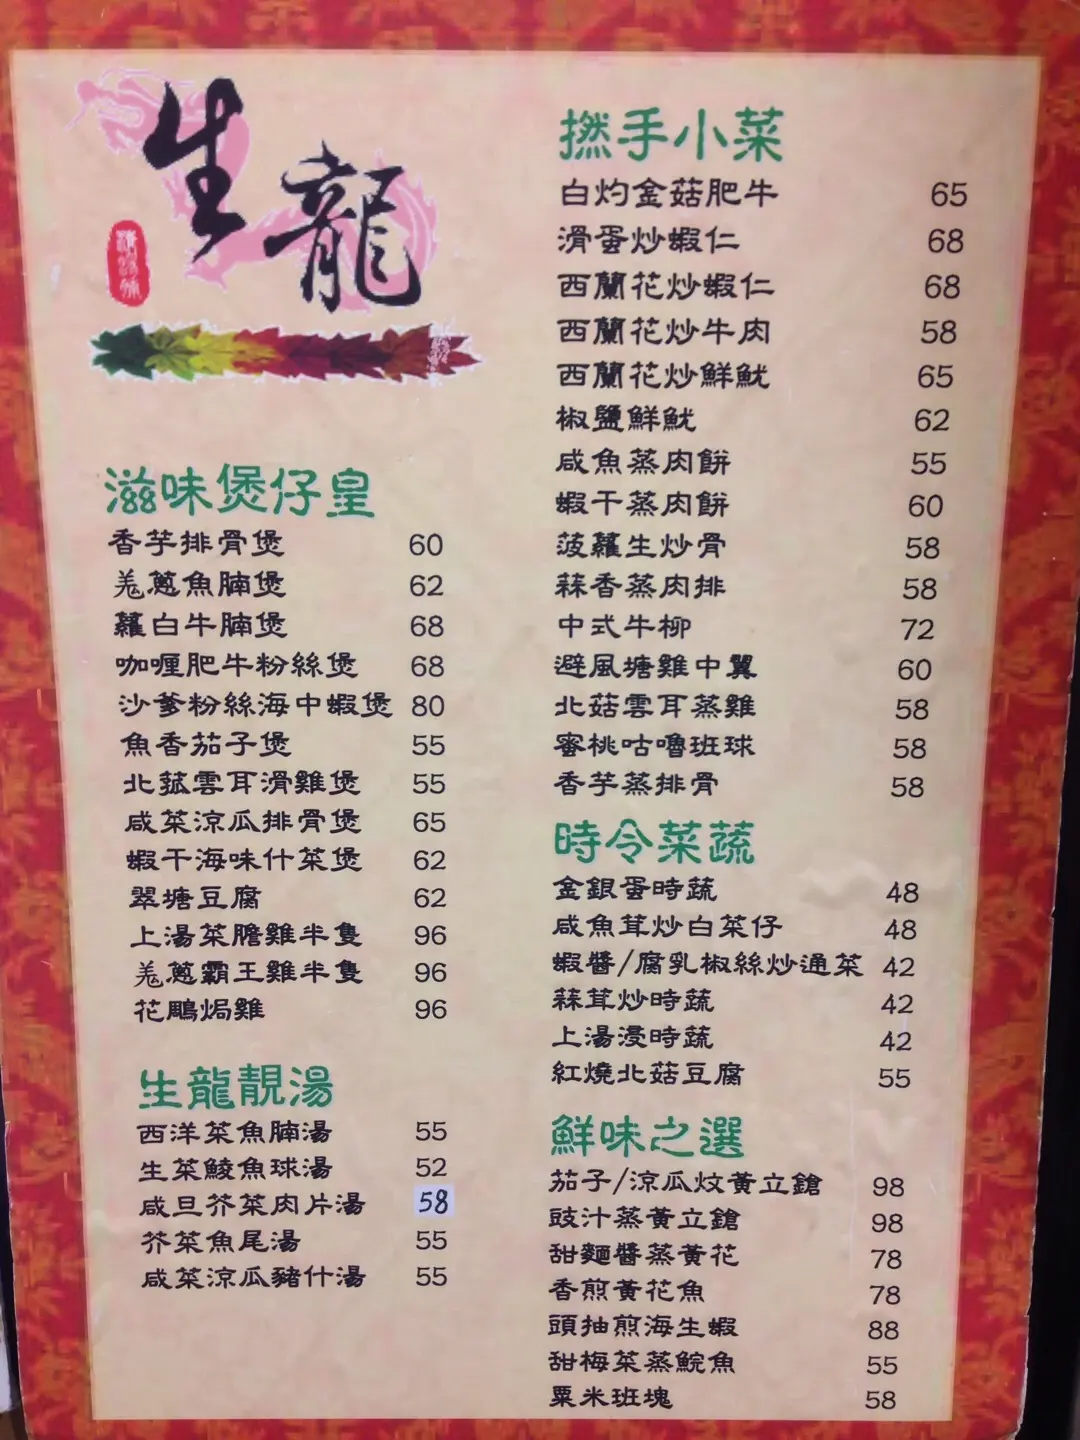 生龍
滋味煲仔皇
香芋排骨煲 60
羗蔥魚腩煲 62
蘿白牛腩煲 68
咖喱肥牛粉絲煲 68
沙爹粉絲海中蝦煲 80
魚香茄子煲 55
北菰雲耳滑雞煲 55
咸菜涼瓜排骨煲 65
蝦干海味什菜煲 62
翠塘豆腐 62
上湯菜膽雞半隻 96
羗蔥霸王雞半隻 96
花鵰焗雞 96
生龍靚湯
西洋菜魚腩湯 55
生菜鯪魚球湯 52
咸旦芥菜肉片湯 58
芥菜魚尾湯 55
咸菜涼瓜豬什湯 55
撚手小菜
白灼金菇肥牛 65
滑蛋炒蝦仁 68
西蘭花炒蝦仁 68
西蘭花炒牛肉 58
西蘭花炒鮮魷 65
椒鹽鮮魷 62
咸魚蒸肉餅 55
蝦干蒸肉餅 60
菠蘿生炒骨 58
蒜香蒸肉排 58
中式牛柳 72
避風塘雞中翼 60
北菇雲耳蒸雞 58
蜜桃咕嚕班球 58
香芋蒸排骨 58
時令菜蔬
金銀蛋時蔬 48
咸魚茸炒白菜仔 48
蝦醬/腐乳椒絲炒通菜 42
蒜茸炒時蔬 42
上湯浸時蔬 42
紅燒北菇豆腐 55
鮮味之選
茄子/涼瓜炆黃立鎗 98
豉汁蒸黃立鎗 98
甜麵醬蒸黃花 78
香煎黃花魚 78
頭抽煎海生蝦 88
甜梅菜蒸鯇魚 55
粟米班塊 58